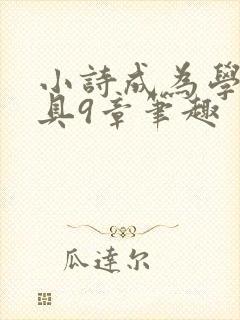 小詩成為學
具9章筆趣
瓜達尔